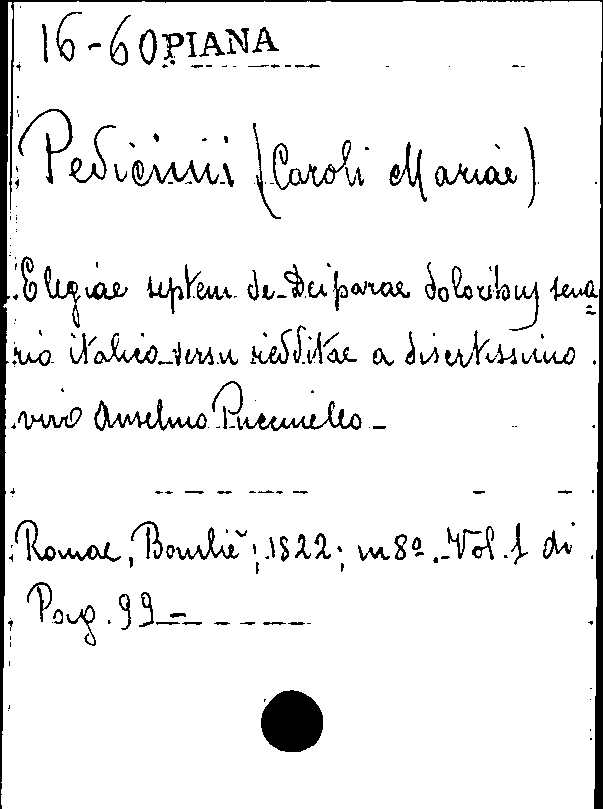 16-60 PIANA
Pedicinii (Caroli Mariae)
Elegiae septem de Deiparae doloribus sena=
rio italico versu redditae a disertissimo
viro Anselmo Pucciniello -
Romae, Bourlié; 1822; in 8º. Vol. 1 di
Pag. 99 -